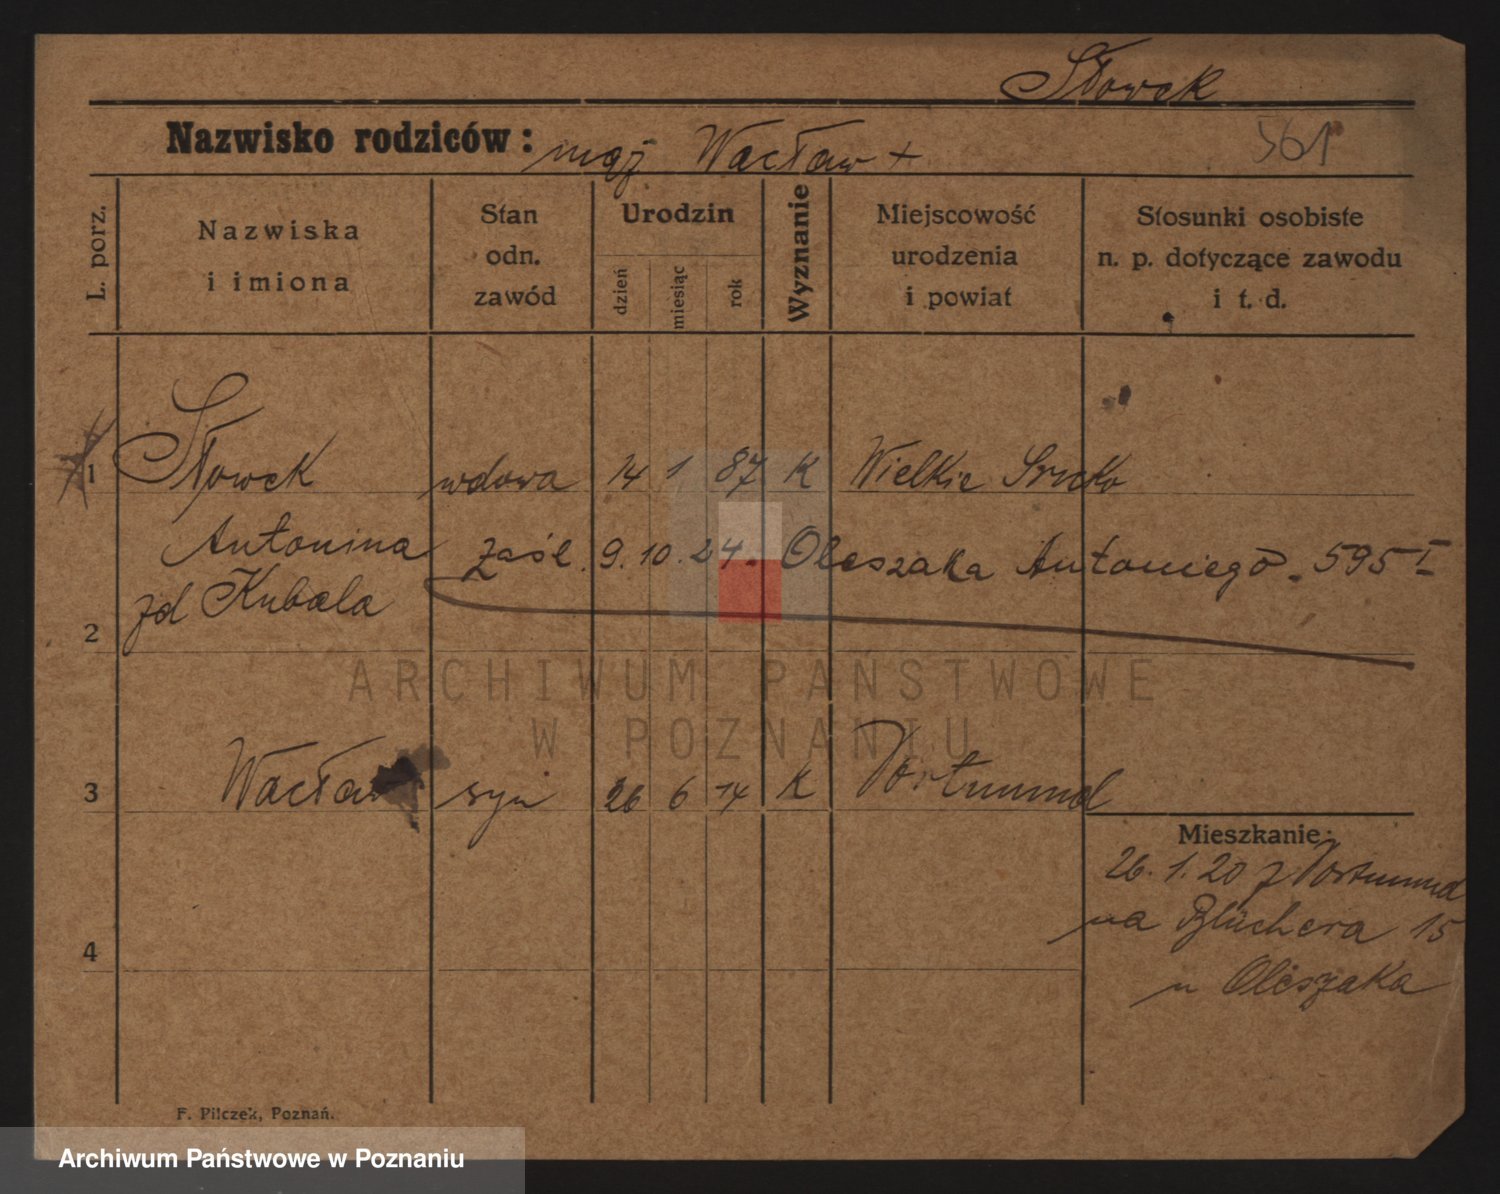 Słowek
Nazwisko rodziców: mąż Wacław +
561
L. porz.
Nazwiska
i imiona
Stan
odn.
zawód
Urodzin
dzień
miesiąc
rok
Wyznanie
Miejscowość
urodzenia
i powiat
Stosunki osobiste
n. p. dotyczące zawodu
i t. d.
1 Słowek wdowa 14 1 87 K Wielkie
Antonina zaśl. 9.10.24. Oleszaka Antoniego. 595 I
zd Kubala
2
3 Wacław syn 26 6 14 K Dortmund
Mieszkanie:
26.1.20 z Dortmund
na Blüchera 15
u Oleszaka
4
F. Pilczek, Poznań.
ARCHIWUM PAŃSTWOWE
W POZNANIU
Archiwum Państwowe w Poznaniu